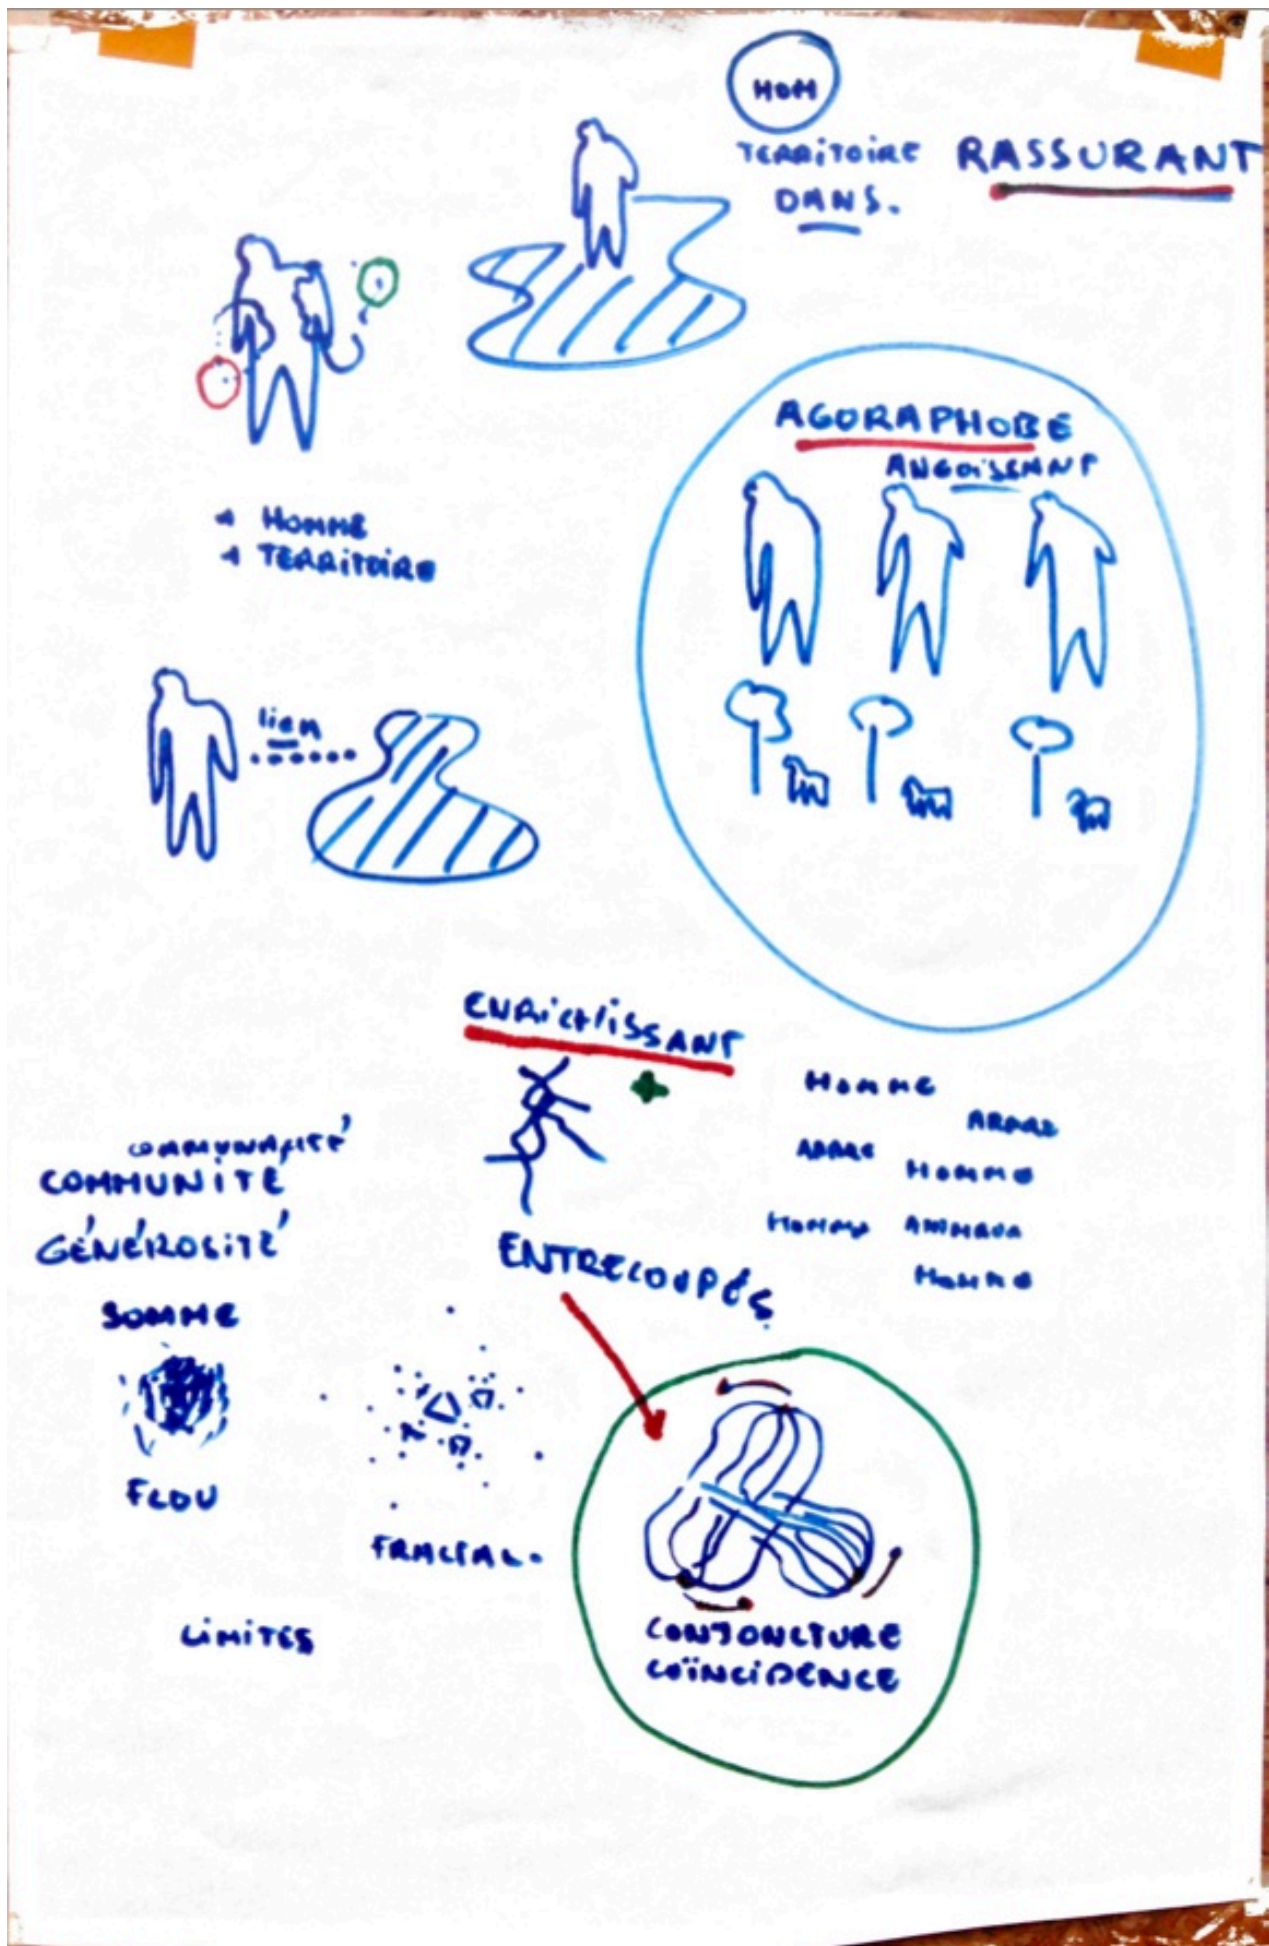 HOM
TERRITOIRE
DANS.
RASSURANT
AGORAPHOBE
ANGOISSANT
HOMME
TERRITOIRE
lien
ENRICHISSANT
HOMME
ARBRE
ARBRE
HOMME
HOMME ANIMAUX
HOMME
COMMUNAUTÉ
COMMUNITÉ
GÉNÉROSITÉ
ENTRECOUPÉS
SOMME
FLOU
FRACTAL.
LIMITES
CONJONCTURE
COÏNCIDENCE